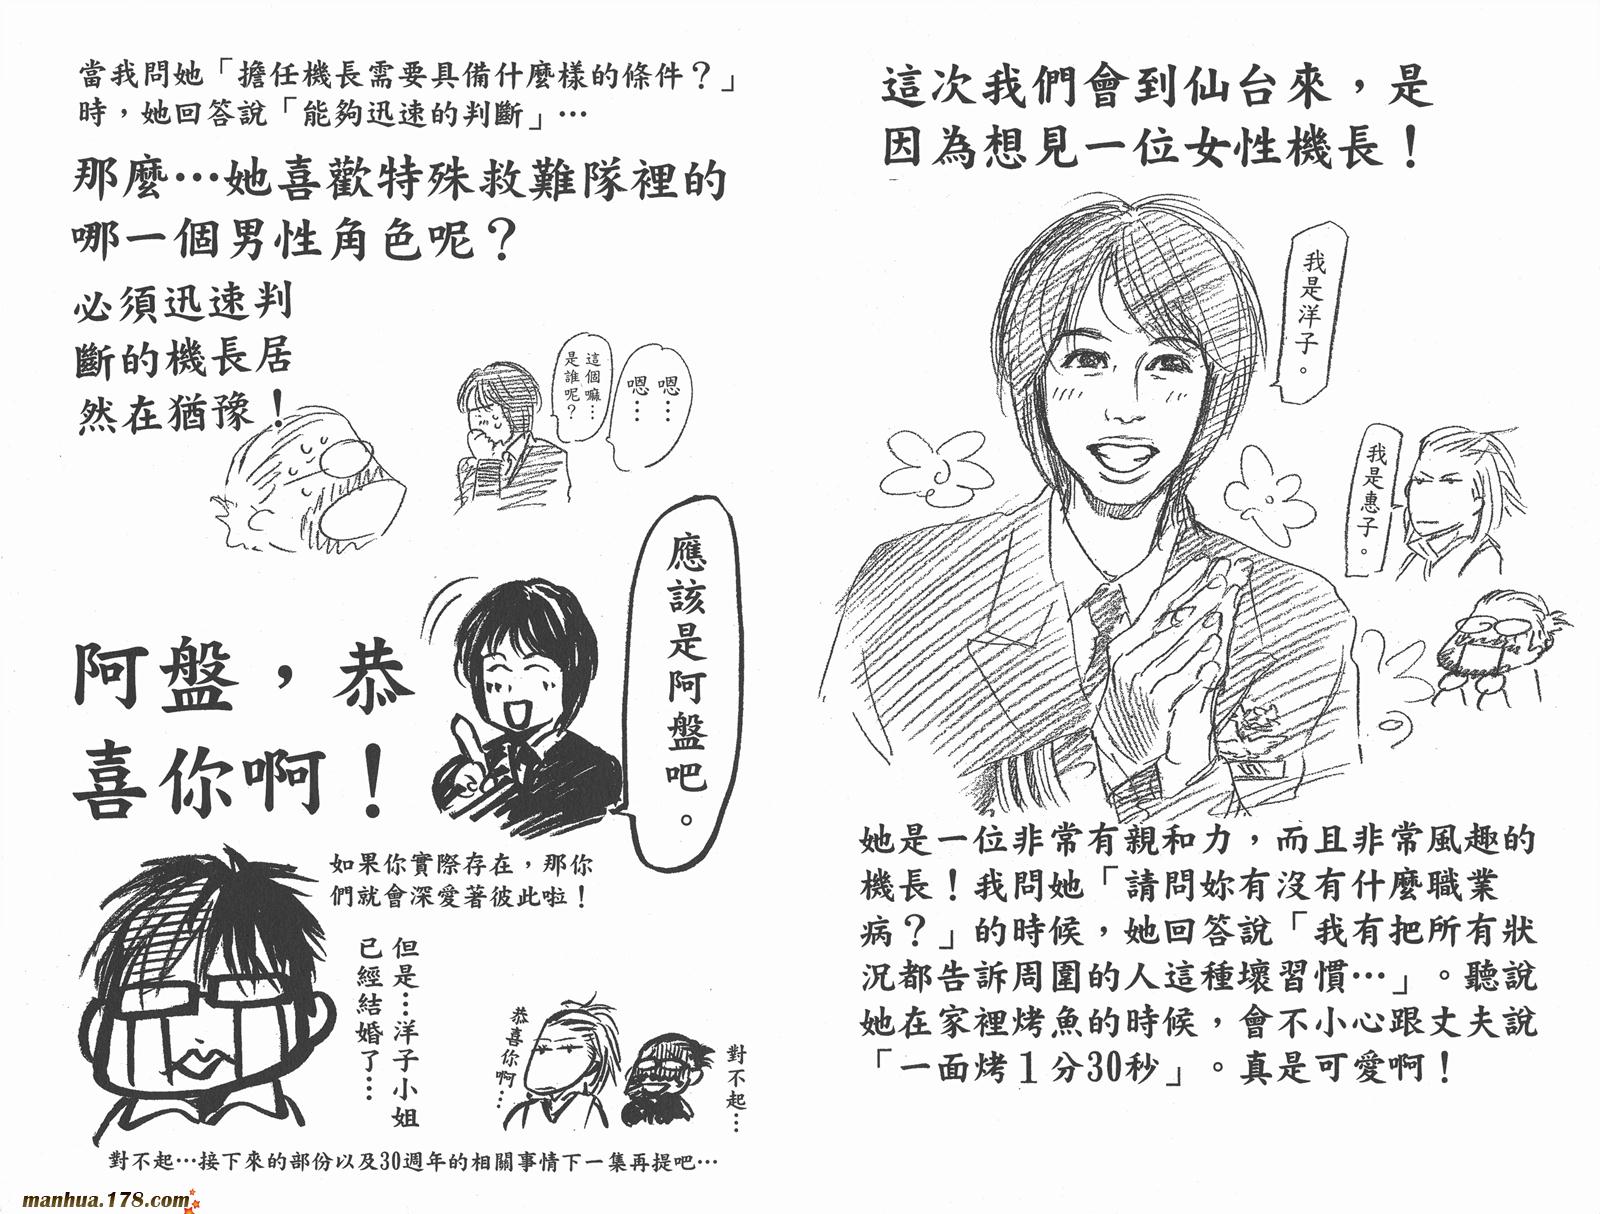 這次我們會到仙台來，是
因為想見一位女性機長！
我是洋子。
我是惠子。
她是一位非常有親和力，而且非常風趣的
機長！我問她「請問妳有沒有什麼職業
病？」的時候，她回答說「我有把所有狀
況都告訴周圍的人這種壞習慣…」。聽說
她在家裡烤魚的時候，會不小心跟丈夫說
「一面烤１分30秒」。真是可愛啊！
當我問她「擔任機長需要具備什麼樣的條件？」
時，她回答說「能夠迅速的判斷」…
那麼…她喜歡特殊救難隊裡的
哪一個男性角色呢？
必須迅速判
斷的機長居
然在猶豫！
嗯…
嗯…
這個嘛…
是誰呢？
應該是阿盤吧。
阿盤，恭
喜你啊！
如果你實際存在，那你
們就會深愛著彼此啦！
但是…洋子小姐
已經結婚了…
恭喜你啊…
對不起…
對不起…接下來的部份以及30週年的相關事情下一集再提吧…
manhua.178.com